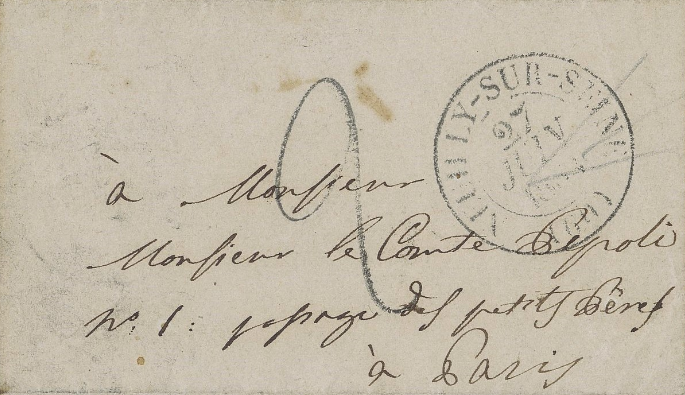 NEUILLY-SUR-SEINE
27
JUIN
(60)
2
à Monsieur
Monsieur le Comte Pepoli
no. 1: passage des petits Pères
à Paris